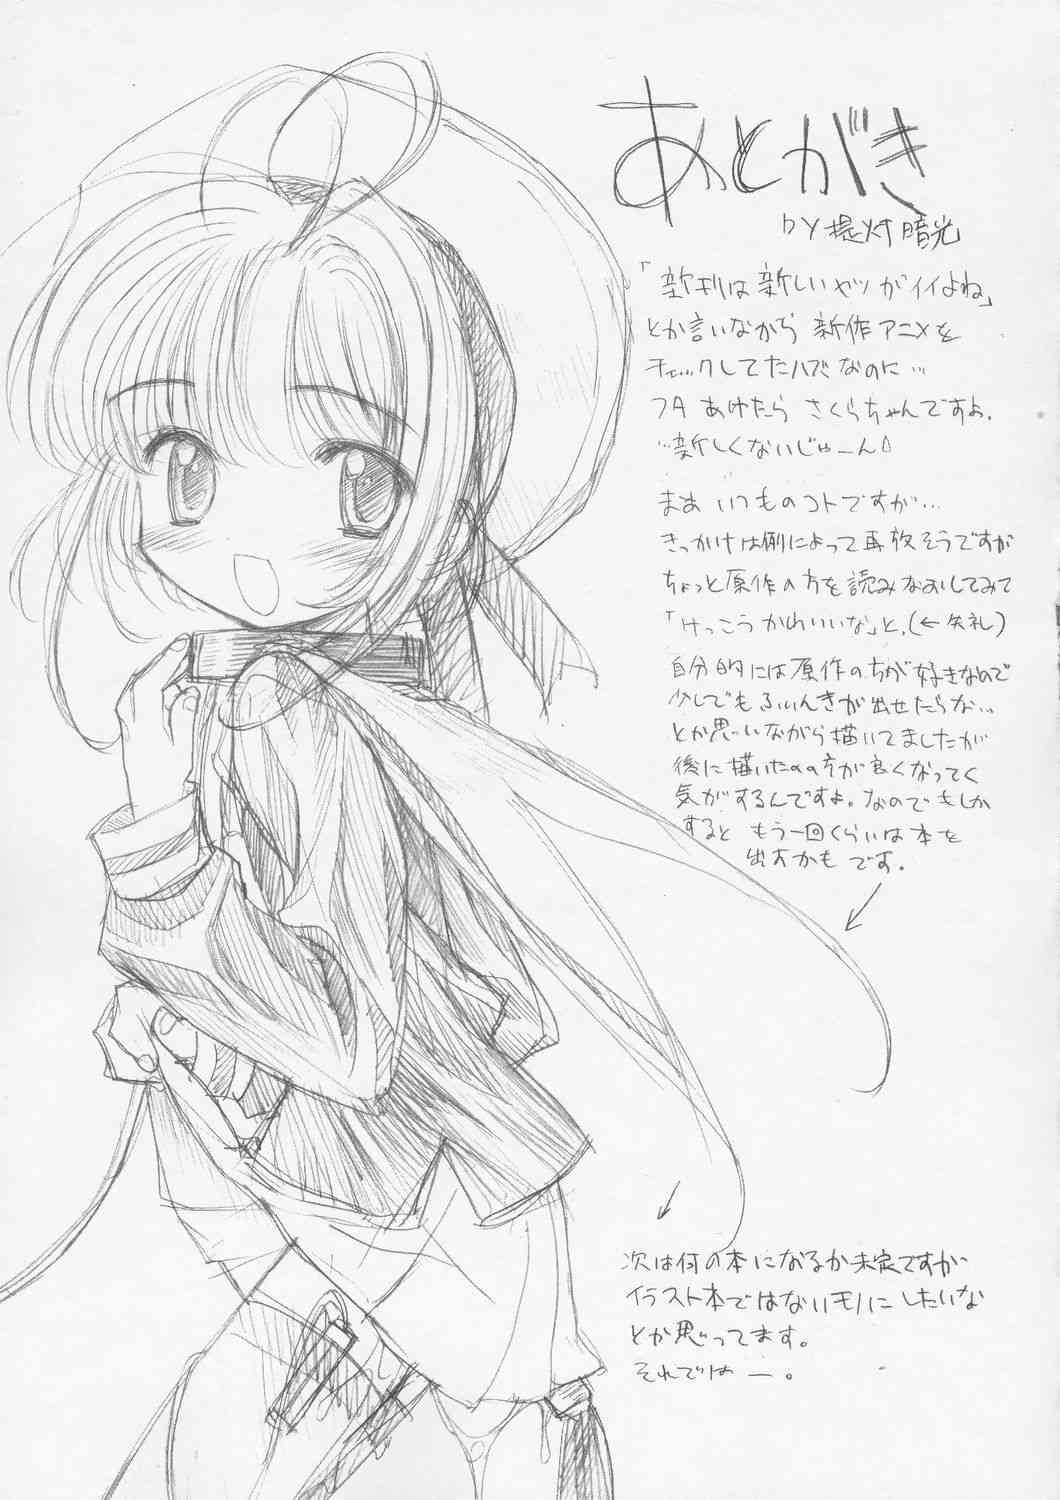 あとがき
by 提灯暗光
「新刊は新しいヤツがイイよね」
とか言いながら 新作アニメを
チェックしてたハズなのに…
フタあけたら さくらちゃんですよ.
…新しくないじゃーん
まあ いつものコトですが…
きっかけは例によって再放そうですが
ちょっと原作の方を読みなおしてみて
「けっこうかわいいな」と.(←失礼)
自分的には原作のちが好きなので
少しでもふいんきが出せたらな…
とか思いながら描いてましたが
後に描いたのの方が良くなってく
気がするんですよ。なのでもしか
すると もう一回くらいは本を
出すかも です。
次は何の本になるか未定ですが
イラスト本ではないモノにしたいな
とか思ってます。
それではー。